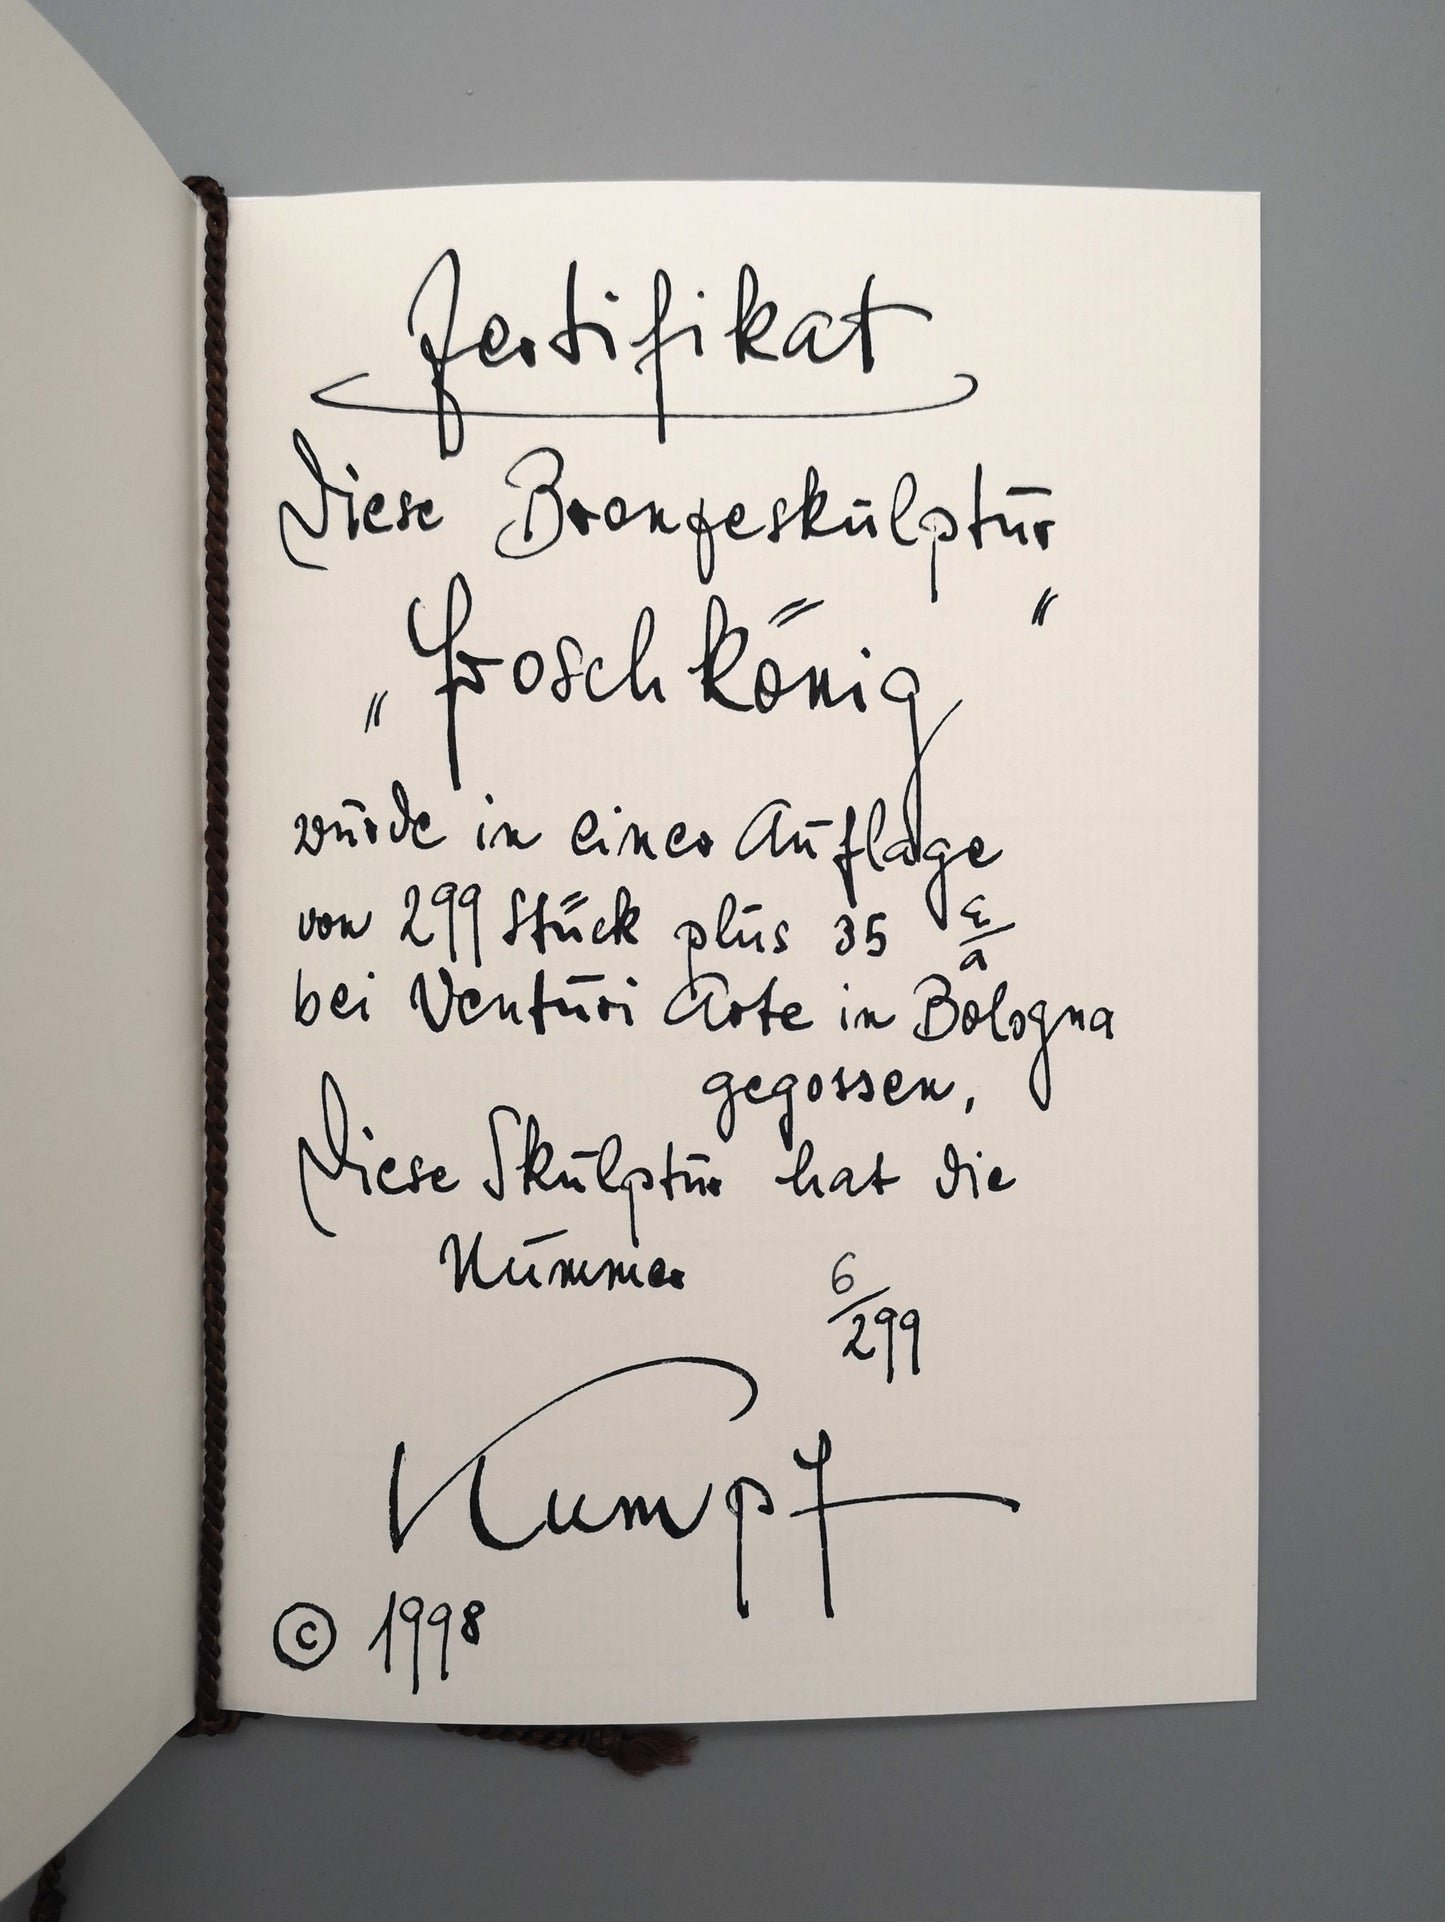 Zertifikat
Diese Bronzeskulptur
„Froschkönig"
wurde in einer Auflage
von 299 Stück plus 35 E/a
bei Venturi Arte in Bologna
gegossen,
Diese Skulptur hat die
Nummer 6/299
Kumpf
© 1998